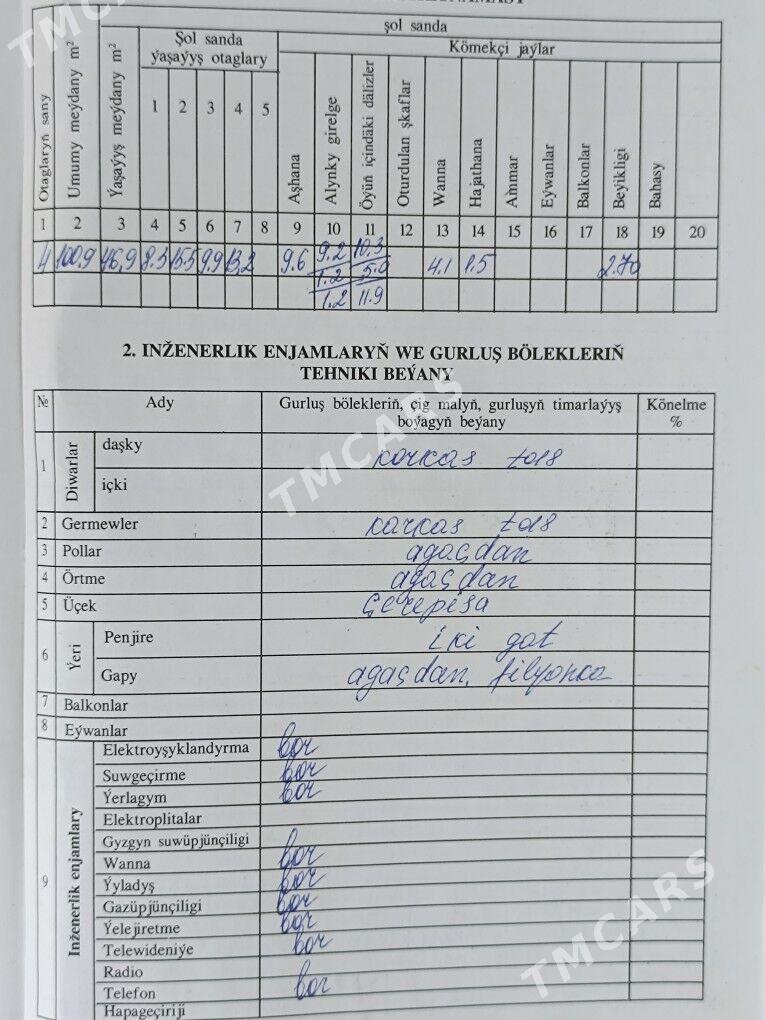 şol sanda
Şol sanda ýaşaýyş otaglary
Kömekçi jaýlar
Otaglaryň sany
Umumy meýdany m²
Ýaşaýyş meýdany m²
1 2 3 4 5
Aşhana
Alynky girelge
Öýüň içindäki dälizler
Oturdulan şkaflar
Wanna
Hajathana
Ammar
Eýwanlar
Balkonlar
Beýikligi
Bahasy
1 2 3 4 5 6 7 8 9 10 11 12 13 14 15 16 17 18 19 20
4 100,9 46,9 8.3 15.5 9.9 13,2 9.6 9.2 10.3 4.1 1.5 2.70
1.2 5.0
1.2 11.9
2. INŽENERLIK ENJAMLARYŇ WE GURLUŞ BÖLEKLERIŇ
TEHNIKI BEÝANY
№ Ady Gurluş bölekleriň, çig malyň, gurluşyň timarlaýyş boýagyň beýany Könelme %
1 Diwarlar daşky karkas
içki
2 Germewler karkas
3 Pollar agaçdan
4 Örtme agaçdan
5 Üçek Çerepisa
6 Ýeri Penjire iki gat
Gapy agaçdan, filyonka
7 Balkonlar
8 Eýwanlar
9 Inženerlik enjamlary Elektroyşyklandyrma bar
Suwgeçirme bar
Ýerlagym bar
Elektroplitalar
Gyzgyn suwüpjünçiligi
Wanna bar
Ýyladyş bar
Gazüpjünçiligi bar
Ýelejiretme bar
Telewideniýe bar
Radio
Telefon bar
Hapageçiriji
TMCARS
TMCARS
TMCARS